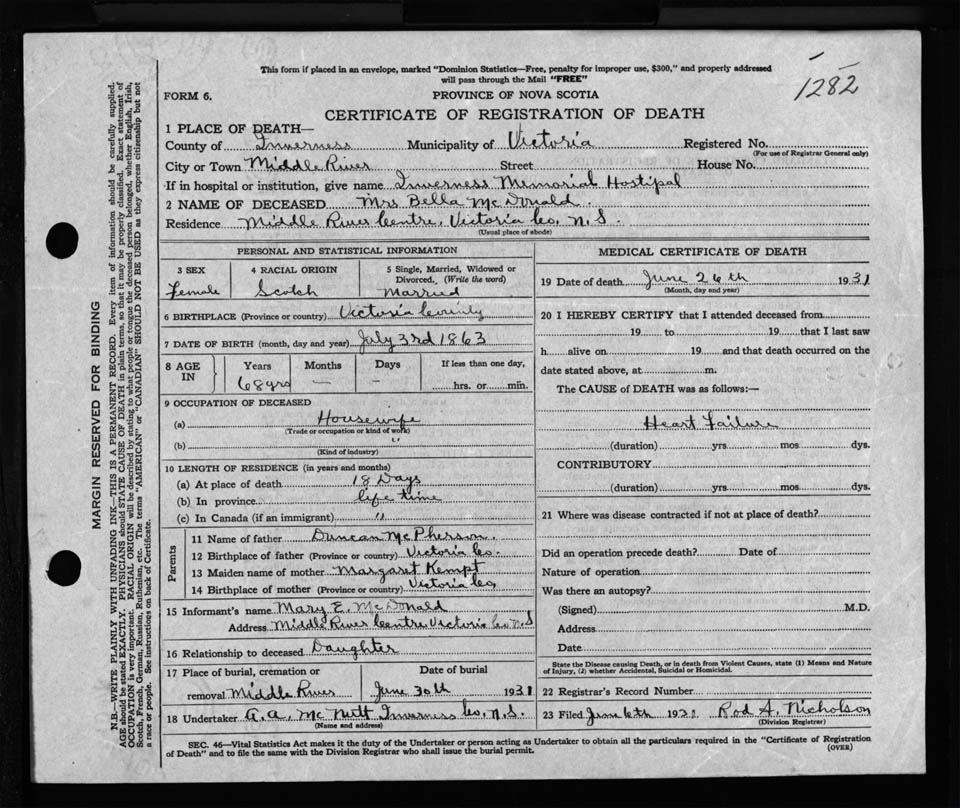 This form if placed in an envelope, marked "Dominion Statistics—Free, penalty for improper use, $300," and properly addressed
will pass through the Mail "FREE"
1282
FORM 6.
PROVINCE OF NOVA SCOTIA
CERTIFICATE OF REGISTRATION OF DEATH
1 PLACE OF DEATH—
County of Inverness Municipality of Victoria Registered No.
(For use of Registrar General only)
City or Town Middle River Street House No.
If in hospital or institution, give name Inverness Memorial Hostipal
2 NAME OF DECEASED Mrs. Bella McDonald.
Residence Middle River Centre, Victoria Co. N.S.
(Usual place of abode)
PERSONAL AND STATISTICAL INFORMATION
3 SEX
Female
4 RACIAL ORIGIN
Scotch
5 Single, Married, Widowed or
Divorced. (Write the word)
Married
6 BIRTHPLACE (Province or country) Victoria County
7 DATE OF BIRTH (month, day and year) July 3rd 1863
8 AGE
IN
Years
68 yrs
Months
—
Days
—
If less than one day,
hrs. or min.
9 OCCUPATION OF DECEASED
(a) Housewife
(Trade or occupation or kind of work)
(b) "
(Kind of industry)
10 LENGTH OF RESIDENCE (in years and months)
(a) At place of death 18 Days
(b) In province life time
(c) In Canada (if an immigrant) "
Parents
11 Name of father Duncan McPherson.
12 Birthplace of father (Province or country) Victoria Co.
13 Maiden name of mother Margaret Kempt
14 Birthplace of mother (Province or country) Victoria Co
15 Informant's name Mary E. McDonald
Address Middle River Centre Victoria Co N.S
16 Relationship to deceased Daughter
17 Place of burial, cremation or
removal Middle River
Date of burial
June 30th 1931
18 Undertaker A.A. McNutt Inverness Co. N.S.
(Name and address)
MEDICAL CERTIFICATE OF DEATH
19 Date of death June 26th 1931
(Month, day and year)
20 I HEREBY CERTIFY that I attended deceased from
19 to 19 that I last saw
h alive on 19 and that death occurred on the
date stated above, at m.
The CAUSE of DEATH was as follows:—
Heart Failure
(duration) yrs mos dys.
CONTRIBUTORY
(duration) yrs mos dys.
21 Where was disease contracted if not at place of death?
Did an operation precede death? Date of
Nature of operation
Was there an autopsy?
(Signed) M.D.
Address
Date
State the Disease causing Death, or in death from Violent Causes, state (1) Means and Nature
of Injury, (2) whether Accidental, Suicidal or Homicidal.
22 Registrar's Record Number
23 Filed June 6th 1931 Rod A. Nicholson
(Division Registrar)
SEC. 46—Vital Statistics Act makes it the duty of the Undertaker or person acting as Undertaker to obtain all the particulars required in the "Certificate of Registration
of Death" and to file the same with the Division Registrar who shall issue the burial permit.
(OVER)
MARGIN RESERVED FOR BINDING
N.B.—WRITE PLAINLY WITH UNFADING INK—THIS IS A PERMANENT RECORD. Every item of information should be carefully supplied.
AGE should be stated EXACTLY. PHYSICIANS should STATE CAUSE OF DEATH in plain terms, so that it may be properly classified. Exact statement of
OCCUPATION is very important. RACIAL ORIGIN will be described by stating to what people or tongue the deceased person belonged, whether English, Irish,
Scotch, French, German, Russian, Ruthenian, etc. The terms "AMERICAN" or "CANADIAN" SHOULD NOT BE USED as they express citizenship but not
a race or people. See instructions on back of Certificate.